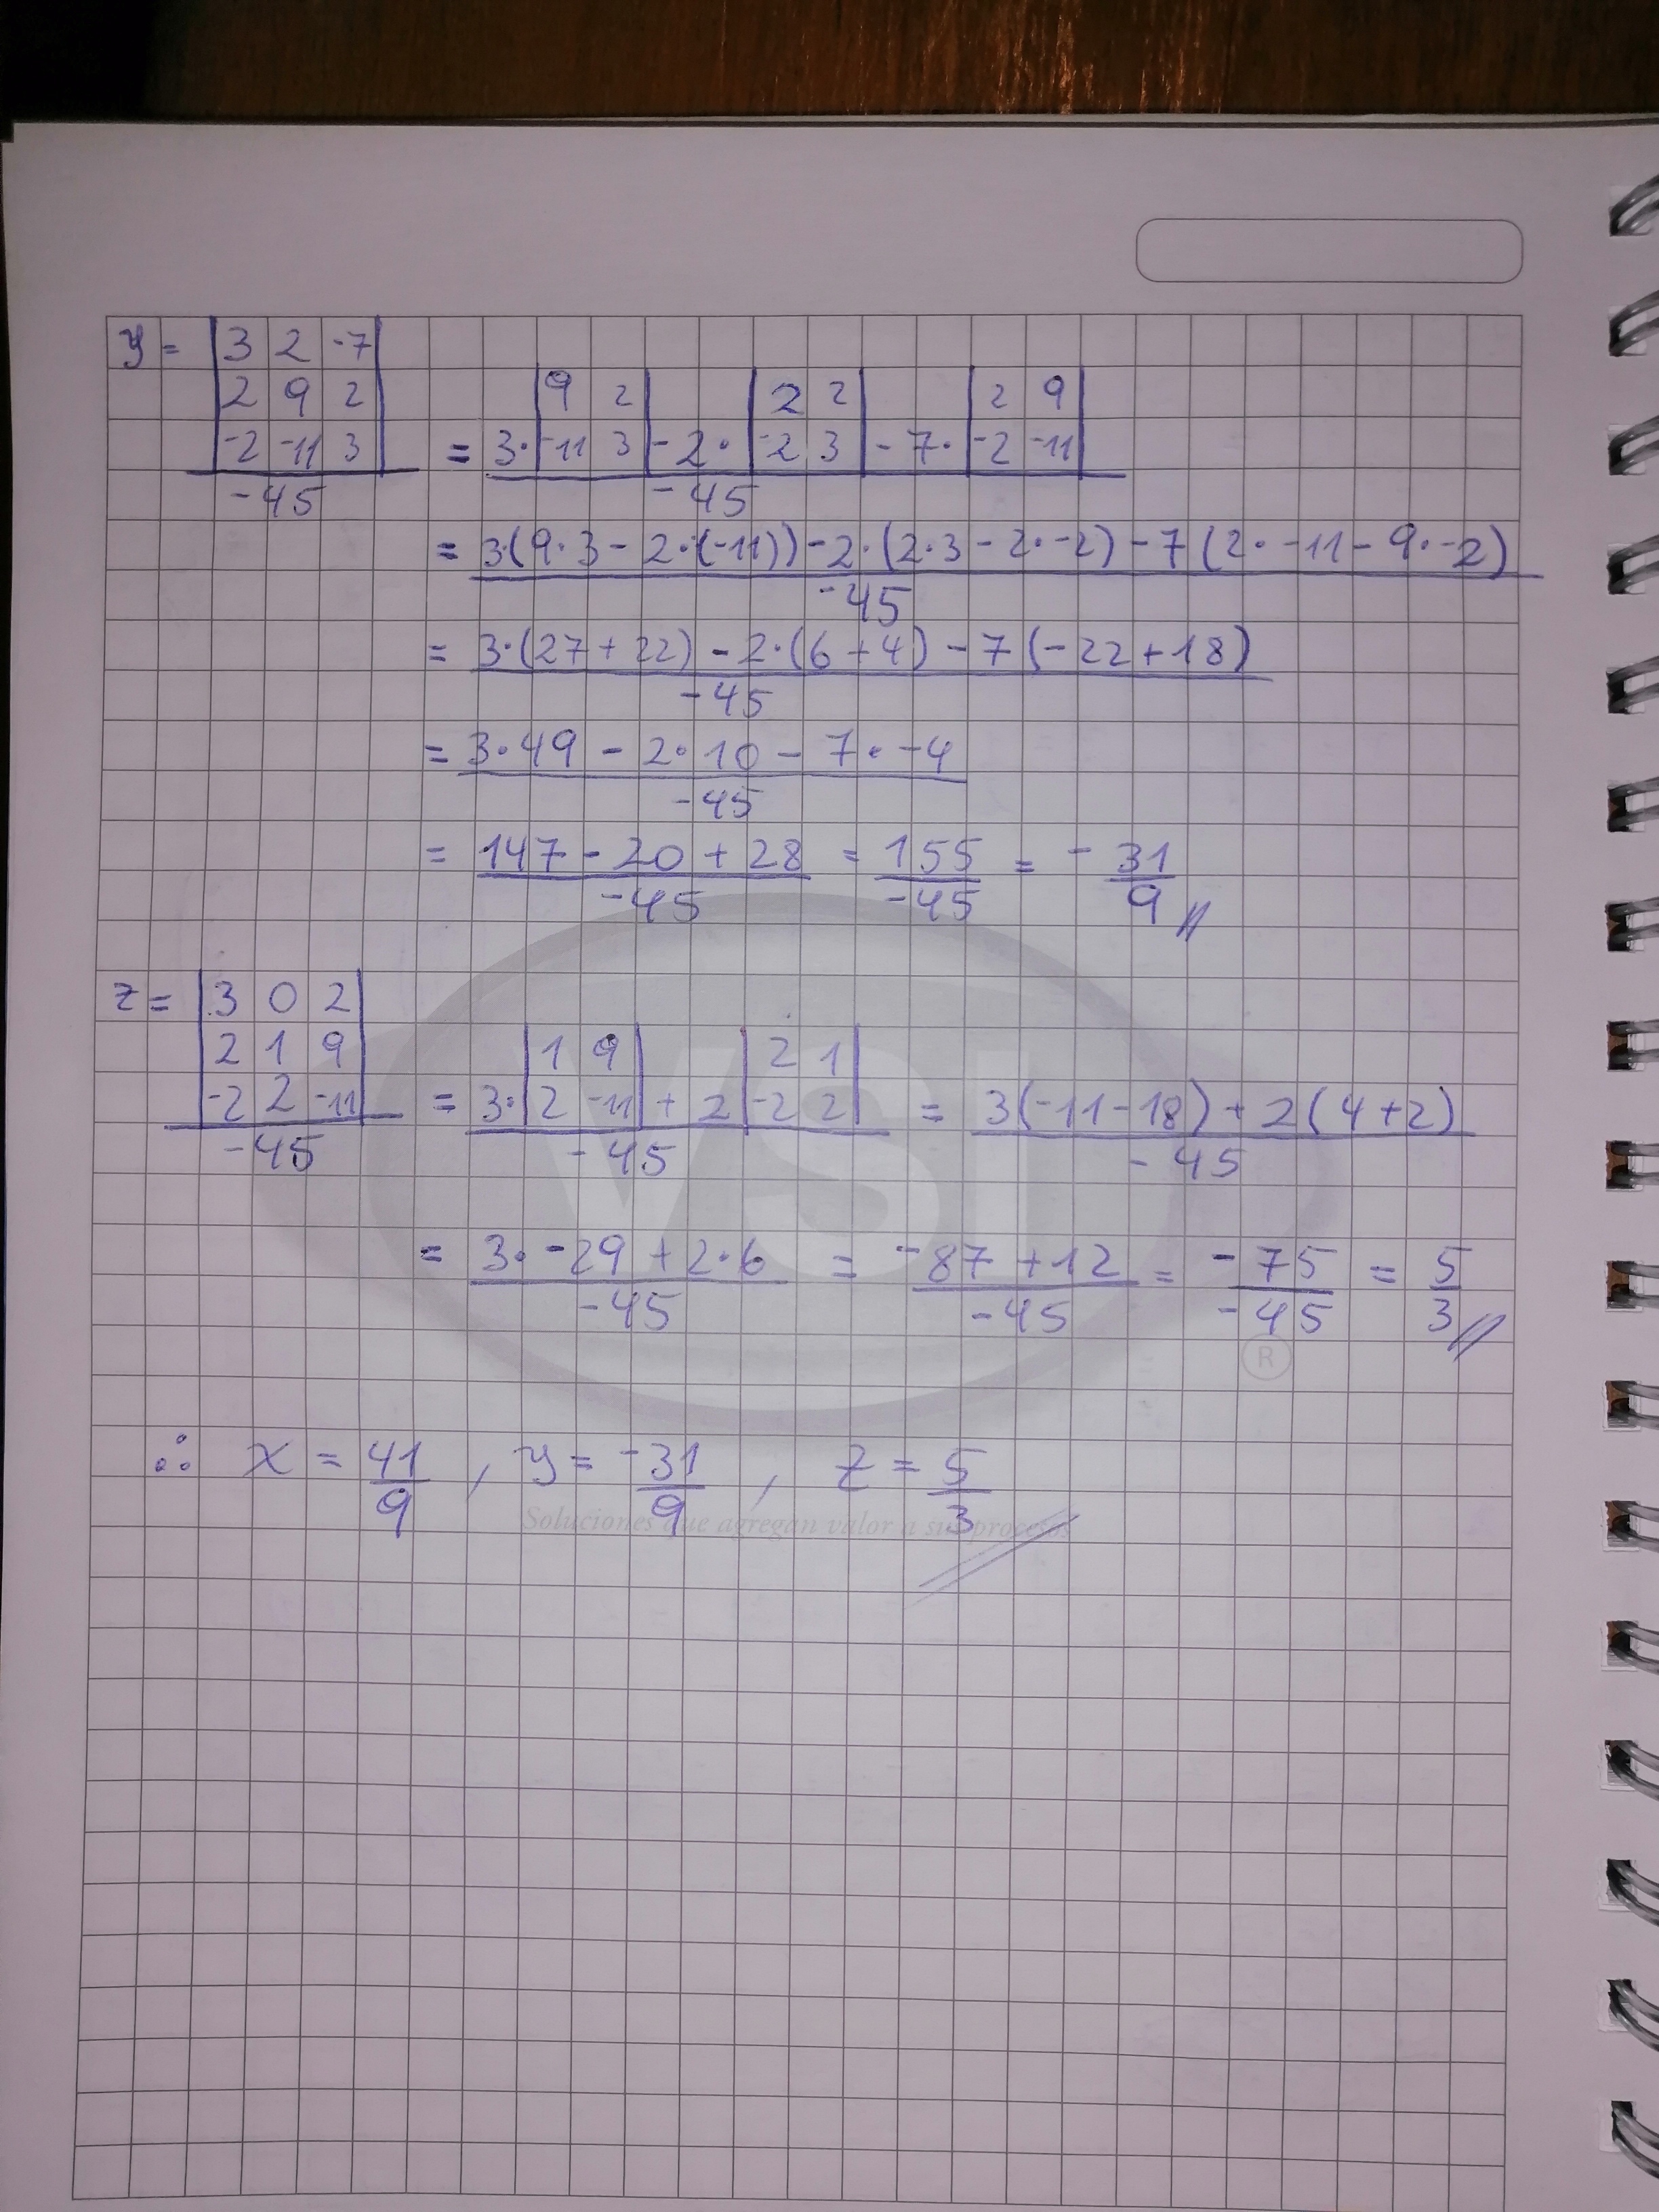 y = | 3 2 -7 |
| 2 9 2 |
| -2 -11 3 |
-45
= 3· | 9 2 | - 2· | 2 2 | - 7· | 2 9 |
| -11 3 | | -2 3 | | -2 -11 |
-45
= 3·(9·3 - 2·(-11)) - 2·(2·3 - 2·-2) - 7(2·-11 - 9·-2)
-45
= 3·(27 + 22) - 2·(6 + 4) - 7(-22 + 18)
-45
= 3·49 - 2·10 - 7·-4
-45
= 147 - 20 + 28 = 155 = - 31
-45 -45 9 //
z = | 3 0 2 |
| 2 1 9 |
| -2 2 -11 |
-45
= 3· | 1 9 | + 2 | 2 1 | = 3(-11-18) + 2(4+2)
| 2 -11 | | -2 2 |
-45 -45
= 3·-29 + 2·6 = -87 + 12 = -75 = 5
-45 -45 -45 3 //
VSI
®
∴ x = 41 , y = -31 , z = 5
9 9 3 //
Soluciones que agregan valor a sus procesos